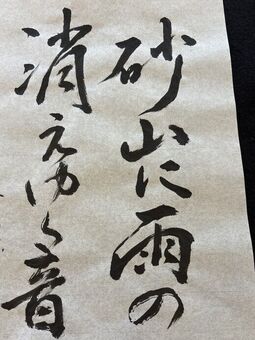 砂山に雨の
消えゆく音